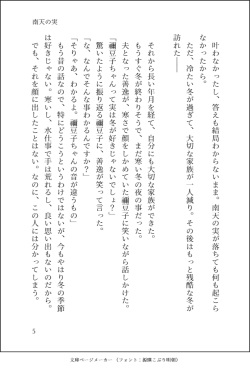 南天の実
叶わなかったし、答えも結局わからないまま。南天の実が落ちても何も起こら
なかったから。
ただ、冷たい冬が過ぎて、大切な家族が一人減り。その後はもっと残酷な冬が
訪れた――
それから長い年月を経て、自分にも大切な家族ができた。
もうすぐ冬が終わりそうで、まだ寒い冬の夜の事だった。
夫となった善逸が、寒さで顔をしかめていた禰豆子に笑いながら話しかけた。
『禰豆子ちゃんって実は冬が好きじゃないでしょ？』
驚いたように振り返る禰豆子に、善逸が笑って言った。
『な、なんでそんな事わかるんですか？』
『そりゃあ、わかるよ。禰豆子ちゃんの音が違うもの』
もう昔の話なので、特にどうこうというわけではないが、今もやはり冬の季節
は好きじゃない。寒いし、水仕事で手は荒れるし、良い思い出もないのだから。
でも、それを顔に出したことはない。なのに、この人には分かってしまう。
5
文庫ページメーカー（フォント：源暎こぶり明朝）